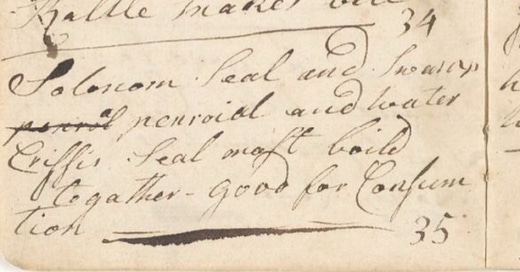 Rattle makes
34
Solonom Seal and Swamp
penroial and water
Criffis Seal most boild
togather - good for Consum
tion 35